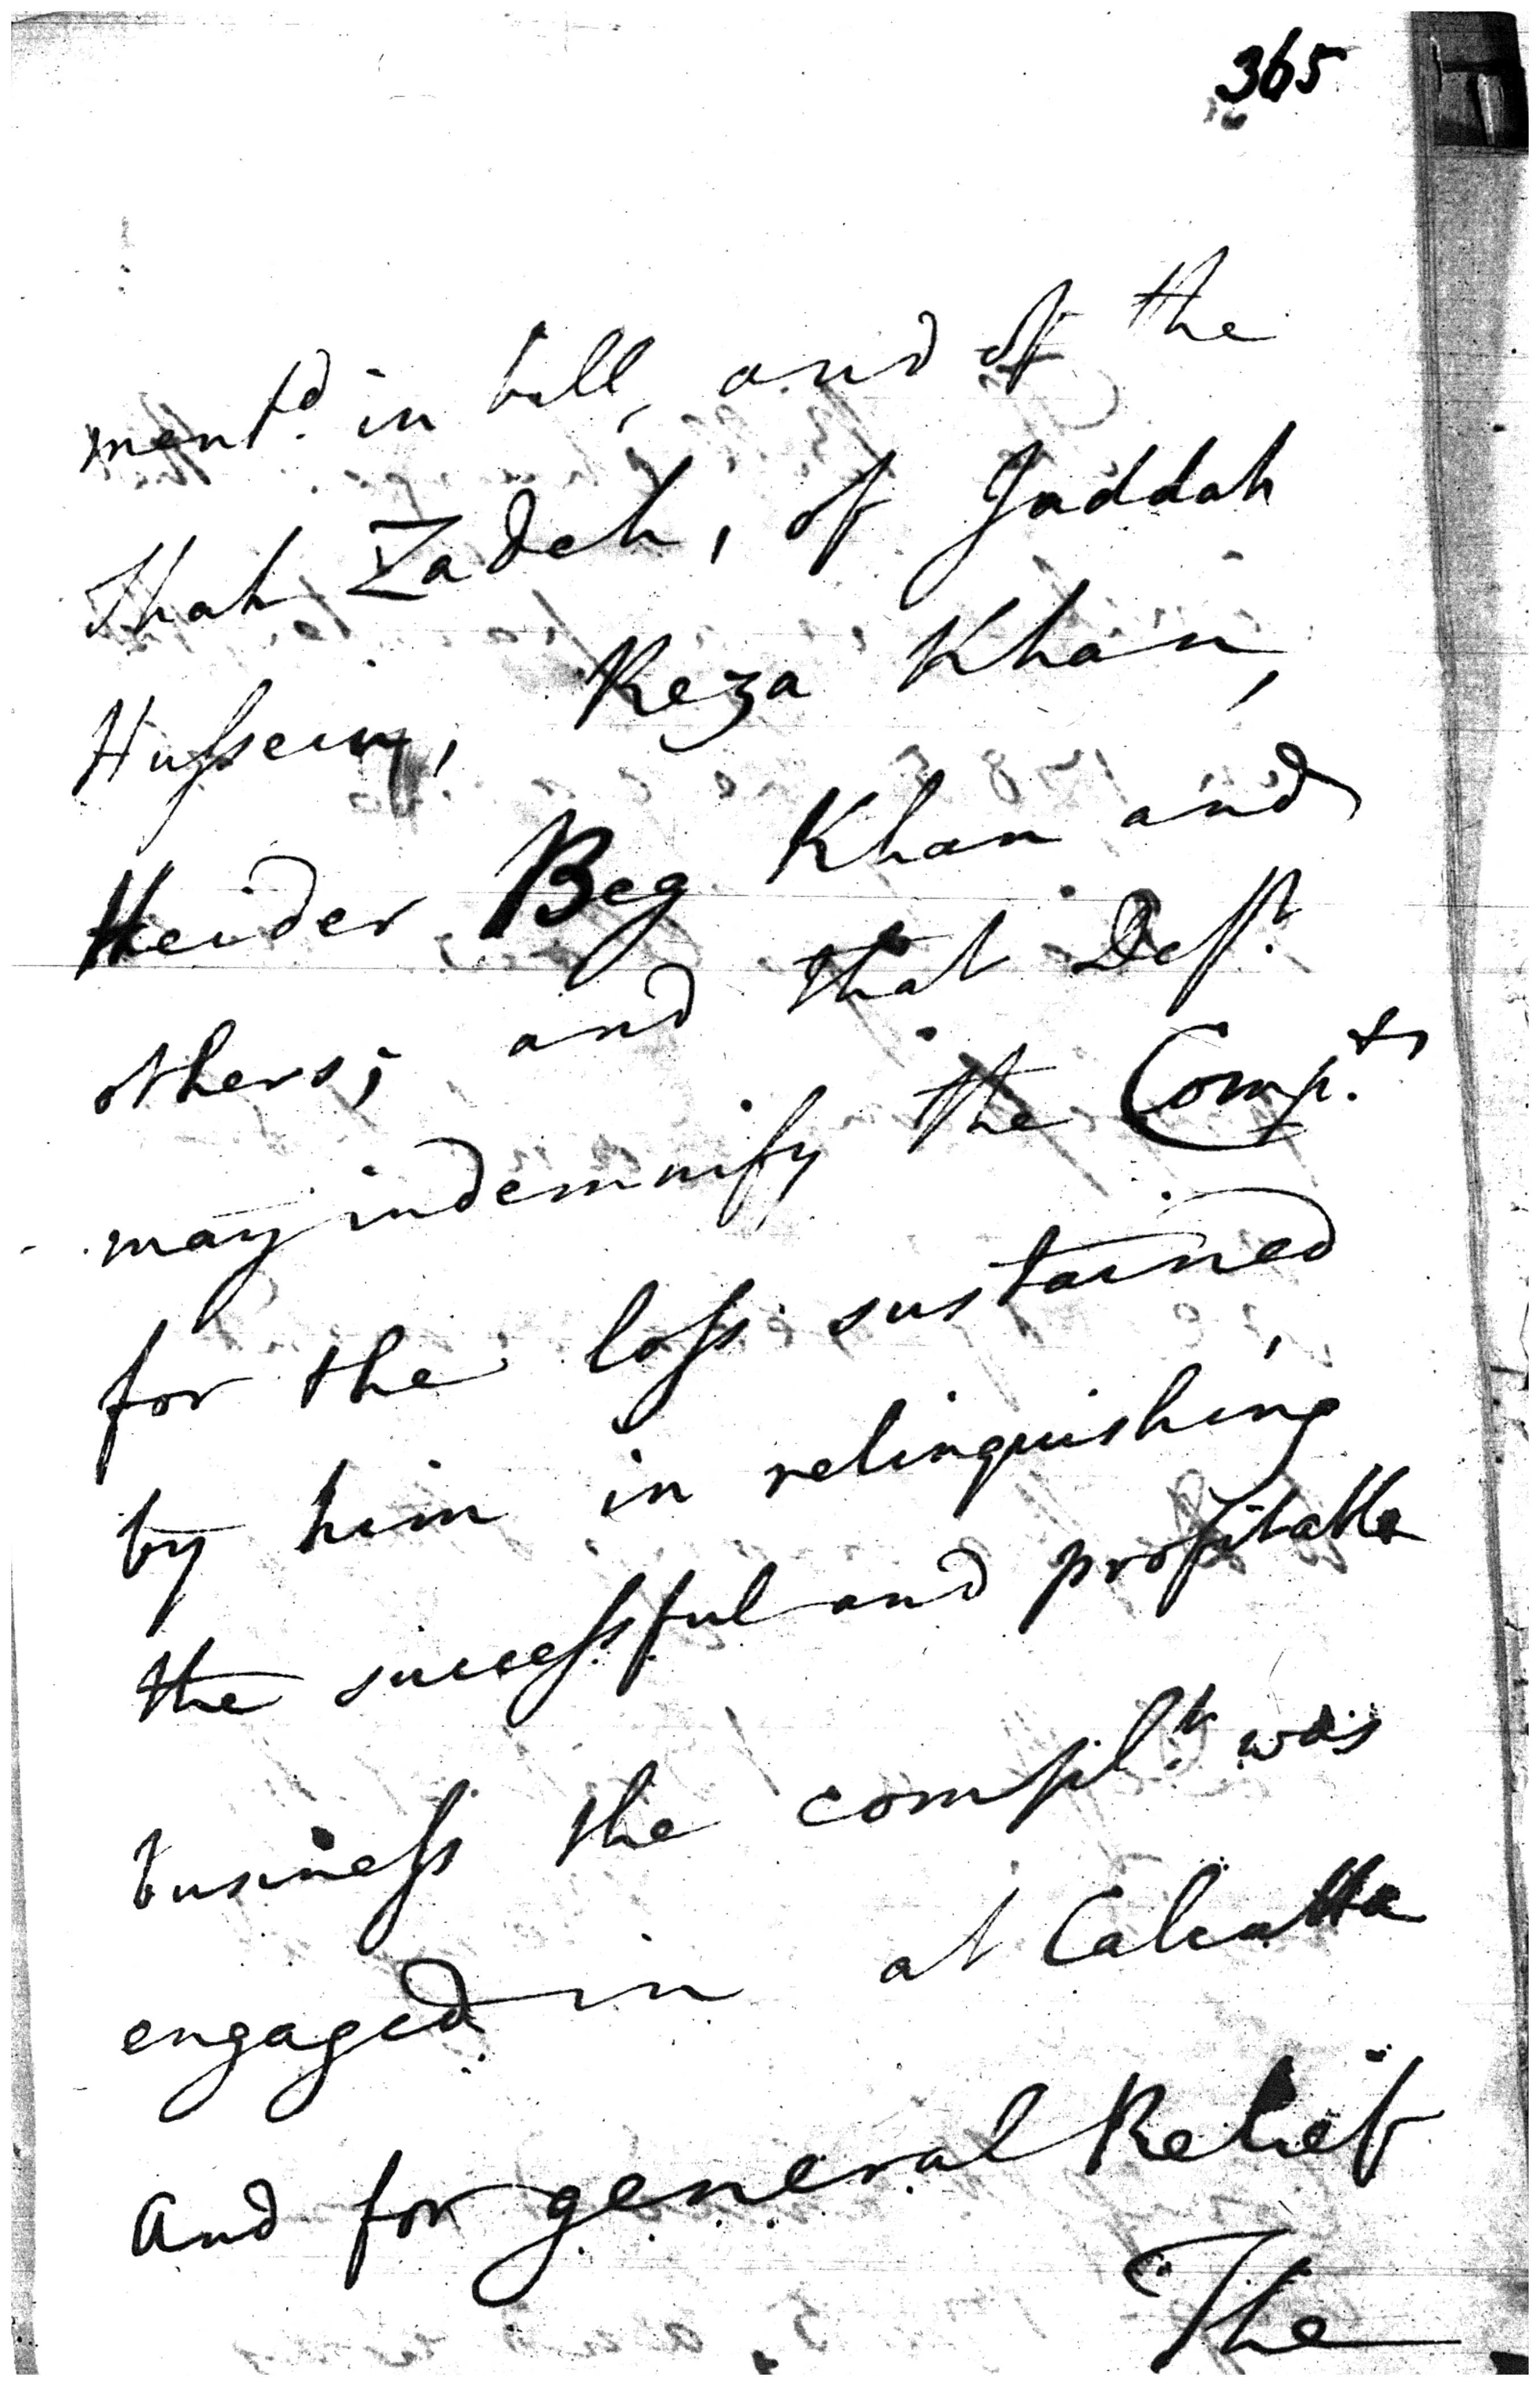 365
ment.d in bill, and of the
Shah Zadeh, of Jaddah
Hussein, Reza Khan,
Heider Beg Khan and
others; and that Def.t
may indemnify the Comp.ts
for the loss sustained
by him in relinquishing
the successful and profitable
business the compl.t was
engaged in at Calcutta
And for general Relief
The